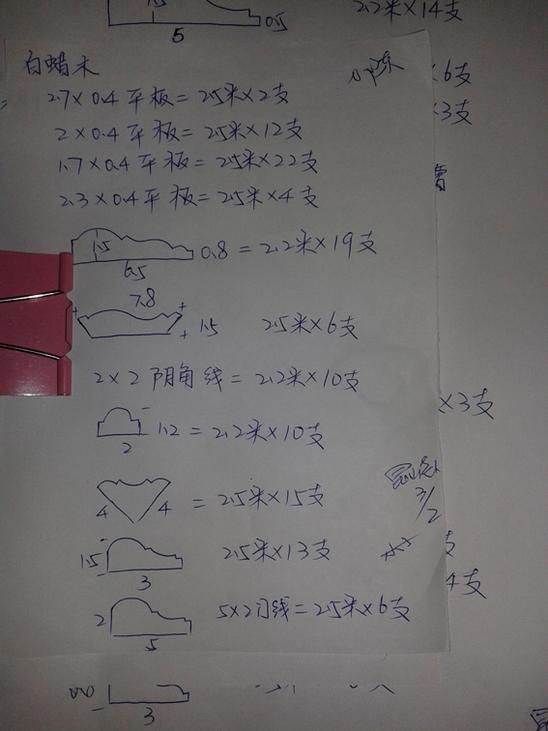 1.5 0.5 2.2米×14支
5
白蜡木
×6支
2.7×0.4平板=2.5米×2支
×3支
2×0.4平板=2.5米×12支
1.7×0.4平板=2.5米×22支
2.3×0.4平板=2.5米×4支
1.5 0.8=2.2米×19支
6.5
7.8
1.5 2.5米×6支
2×2阴角线=2.2米×10支
×3支
1.2=2.2米×10支
2
4 4=2.5米×15支
3/2
1.5 2.5米×13支
支
3
4支
2 5×2门线=2.5米×6支
5
3